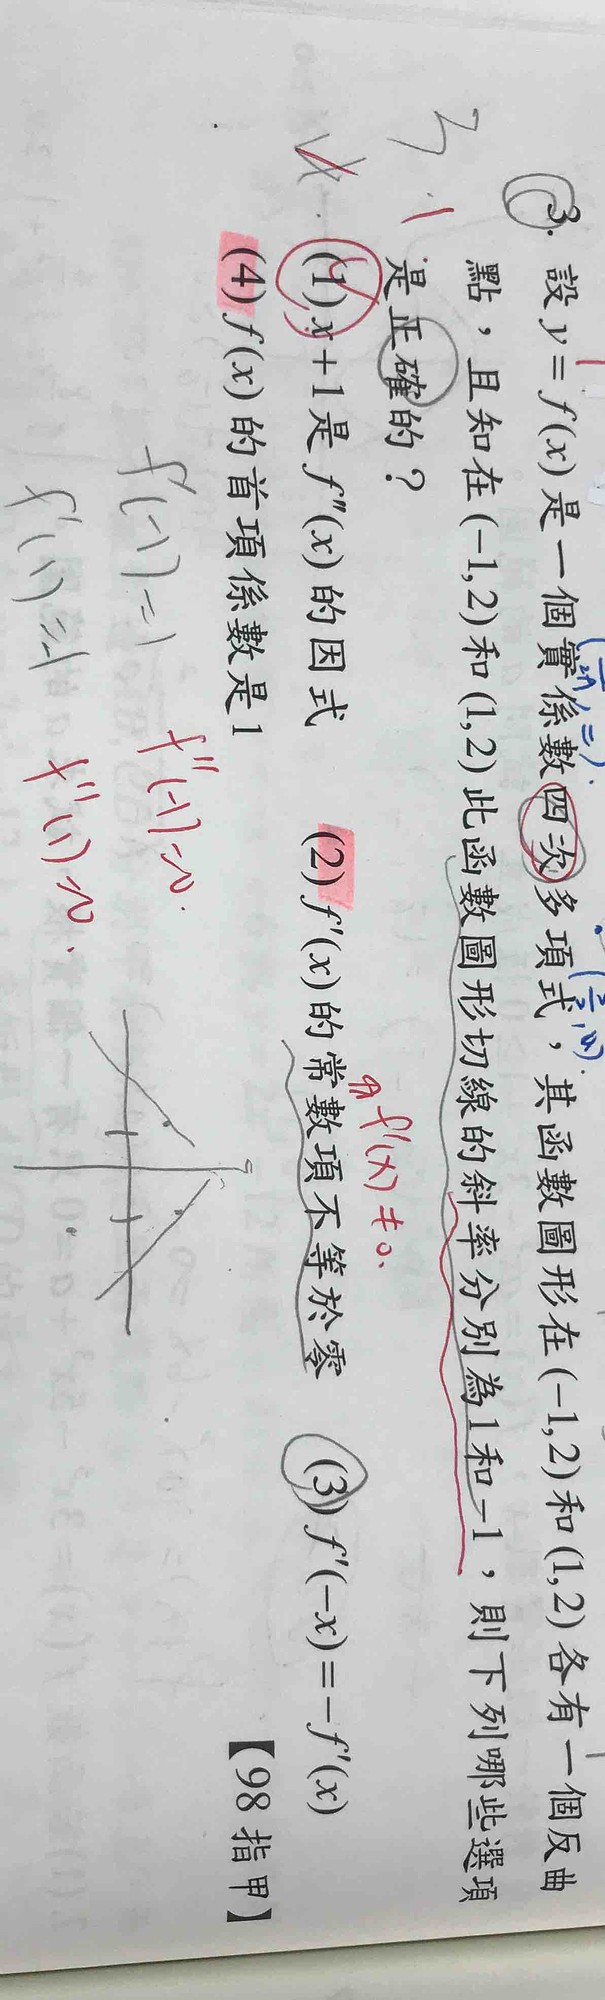 3. 設 y = f(x) 是一個實係數四次多項式，其函數圖形在 (-1,2) 和 (1,2) 各有一個反曲
點，且知在 (-1,2) 和 (1,2) 此函數圖形切線的斜率分別為1和-1，則下列哪些選項
是正確的？
f'(x) ≠ 0.
(1) x+1 是 f"(x) 的因式 (2) f'(x) 的常數項不等於零 (3) f'(-x) = -f'(x)
(4) f(x) 的首項係數是1 【98 指甲】
f'(-1) = 1 f"(-1) = 0.
f'(1) = -1 f"(1) = 0.